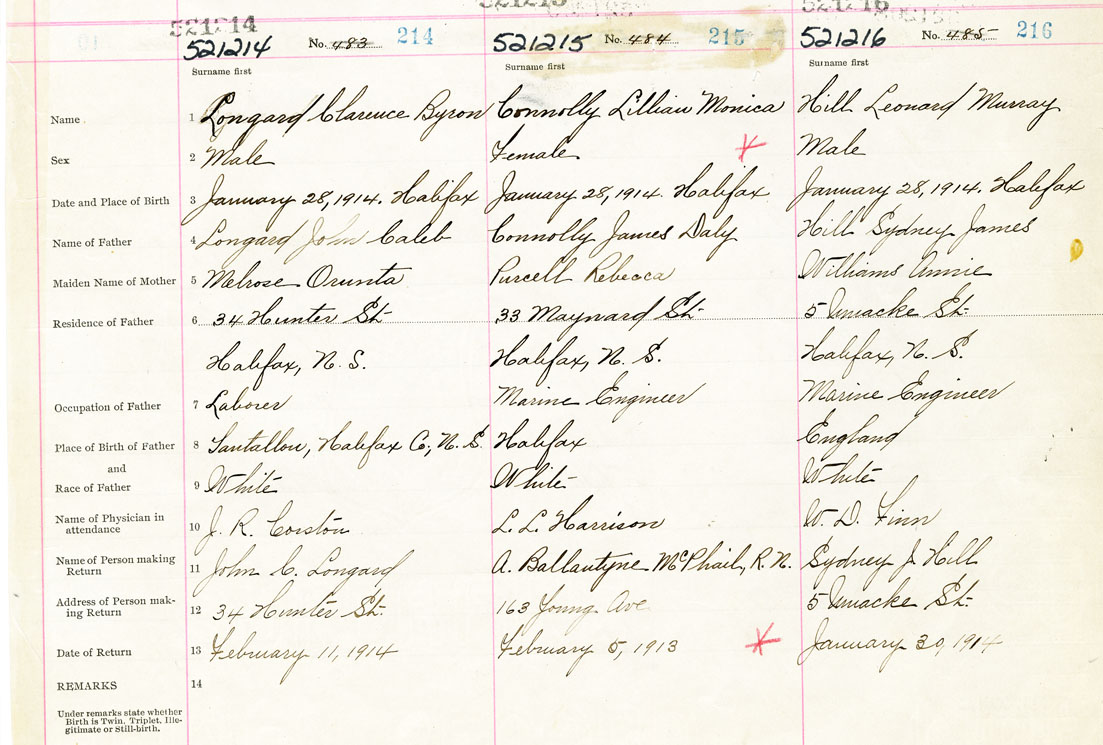 521214 521215 521216
521214 No. 483 214 521215 No. 484 215 521216 No. 485 216
Surname first Surname first Surname first
Name 1 Longard Clarence Byron Connolly Lillian Monica Hill Leonard Murray
Sex 2 Male Female Male
Date and Place of Birth 3 January 28, 1914. Halifax January 28, 1914. Halifax January 28, 1914. Halifax
Name of Father 4 Longard John Caleb Connolly James Daly Hill Sydney James
Maiden Name of Mother 5 Melrose Orunta Purcell Rebecca Williams Annie
Residence of Father 6 34 Hunter St. 33 Maynard St. 5 Uniacke St.
Halifax, N. S. Halifax, N. S. Halifax, N. S.
Occupation of Father 7 Laborer Marine Engineer Marine Engineer
Place of Birth of Father 8 Tantallon, Halifax Co., N. S. Halifax England
and
Race of Father 9 White White White
Name of Physician in
attendance 10 J. R. Corston L. L. Harrison W. D. Finn
Name of Person making
Return 11 John C. Longard A. Ballantyne McPhail, R. N. Sydney J. Hill
Address of Person mak-
ing Return 12 34 Hunter St. 163 Young Ave. 5 Uniacke St.
Date of Return 13 February 11, 1914 February 5, 1913 January 30, 1914
REMARKS 14
Under remarks state whether
Birth is Twin, Triplet, Ille-
gitimate or Still-birth.